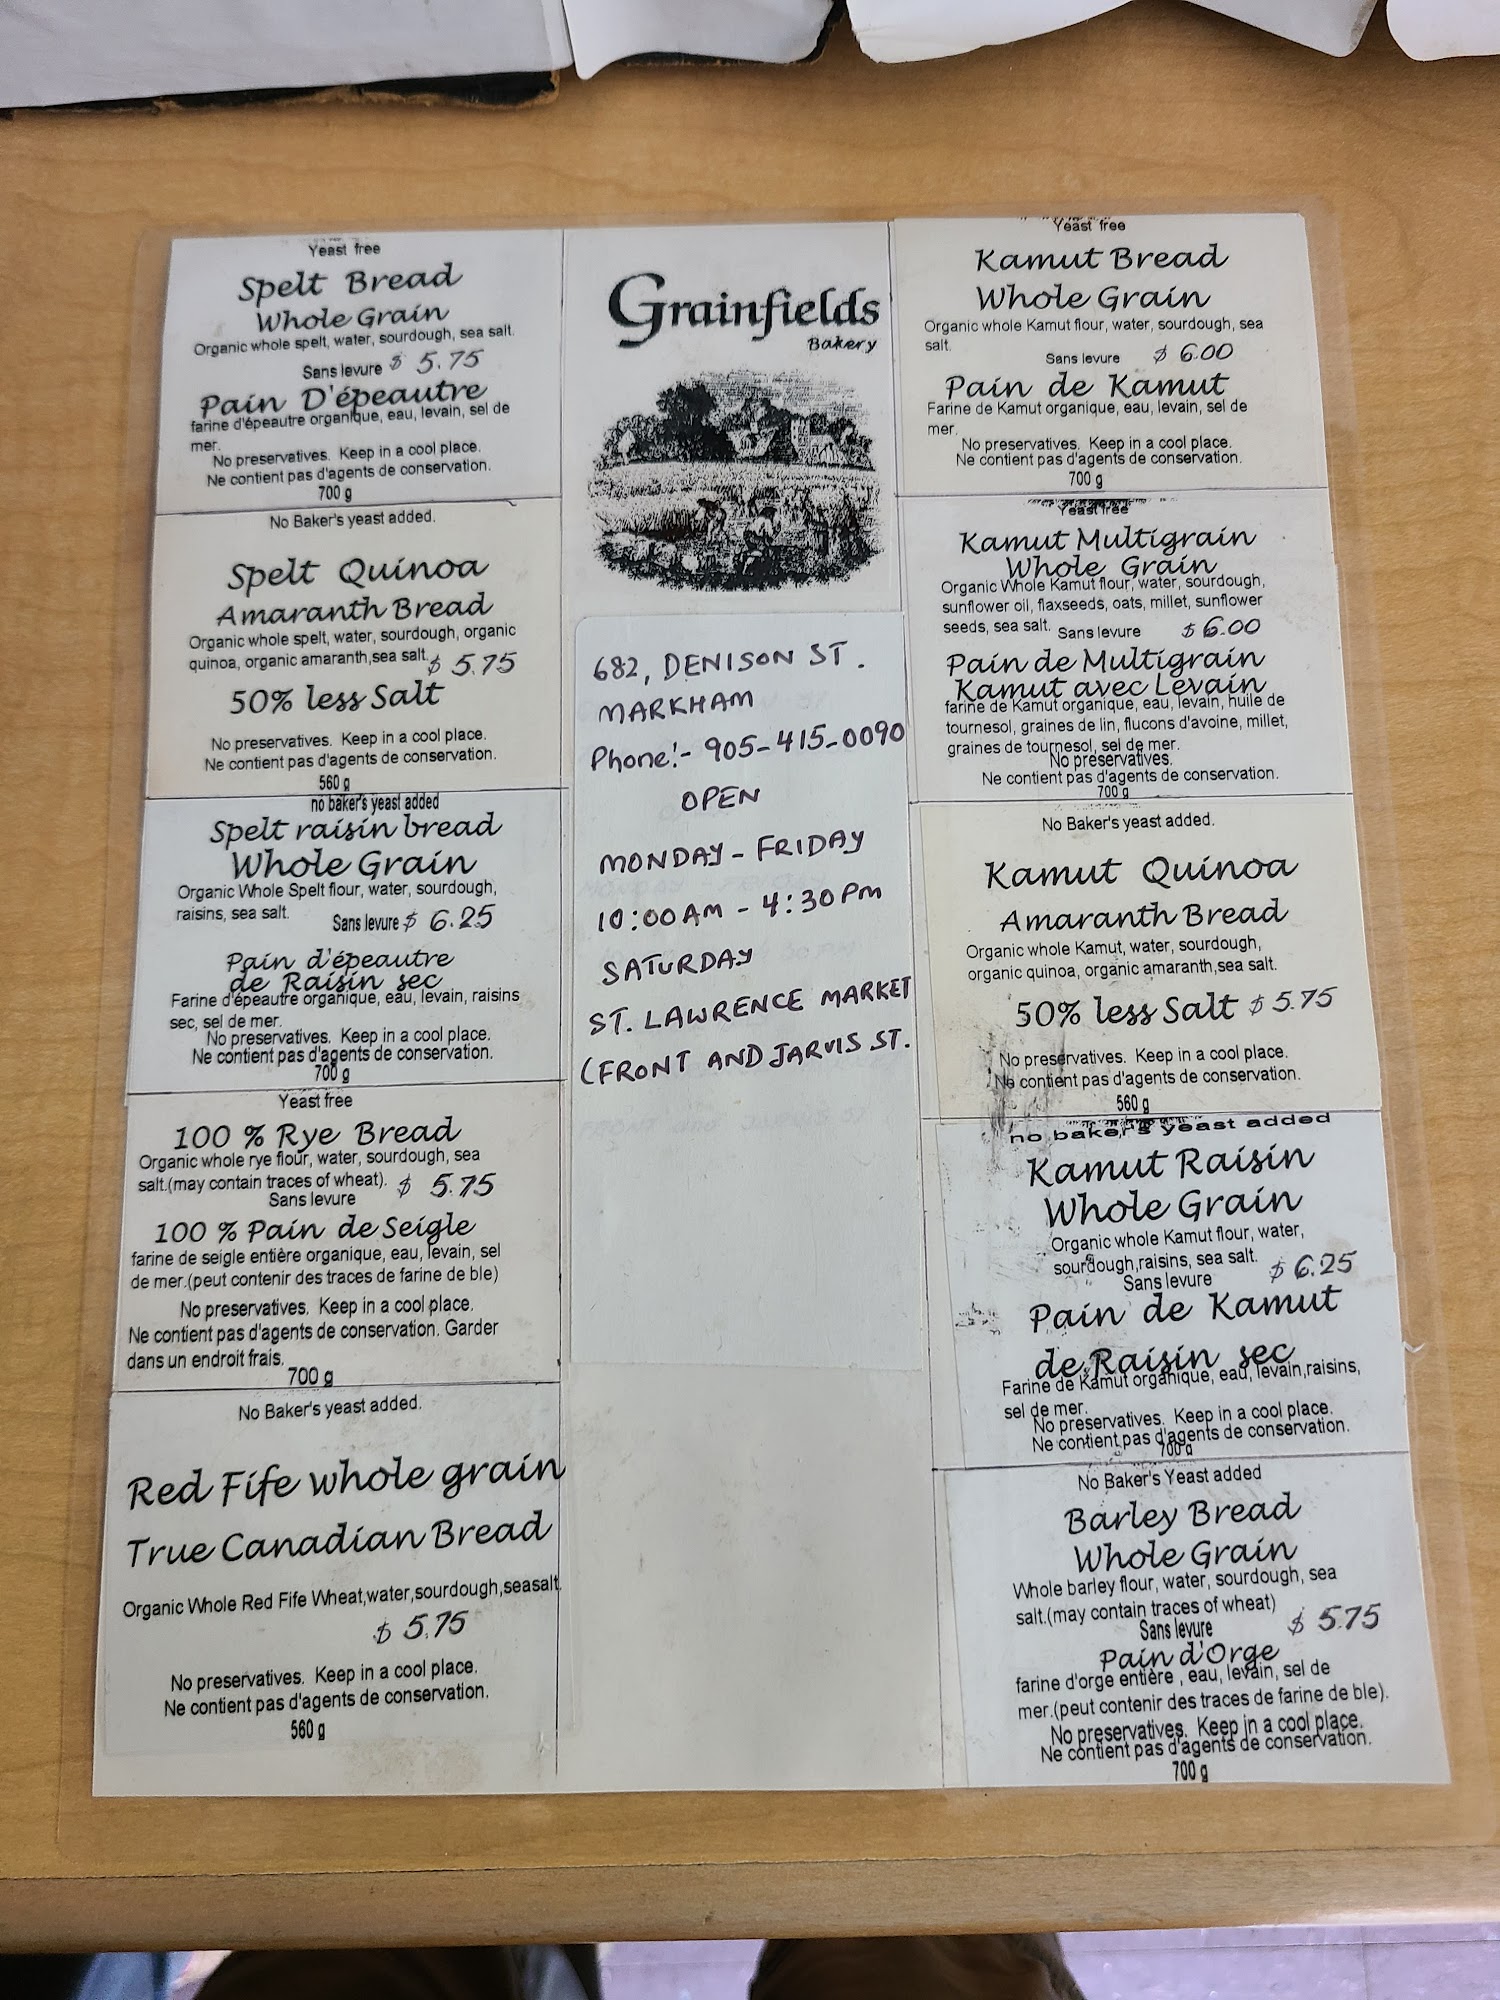 Yeast free
Spelt Bread
Whole Grain
Organic whole spelt, water, sourdough, sea salt.
Sans levure $ 5.75
Pain D'épeautre
farine d'épeautre organique, eau, levain, sel de
mer.
No preservatives. Keep in a cool place.
Ne contient pas d'agents de conservation.
700 g
No Baker's yeast added.
Spelt Quinoa
Amaranth Bread
Organic whole spelt, water, sourdough, organic
quinoa, organic amaranth,sea salt. $ 5.75
50% less Salt
No preservatives. Keep in a cool place.
Ne contient pas d'agents de conservation.
560 g
no baker's yeast added
Spelt raisin bread
Whole Grain
Organic Whole Spelt flour, water, sourdough,
raisins, sea salt. Sans levure $ 6.25
Pain d'épeautre
de Raisin sec
Farine d'épeautre organique, eau, levain, raisins
sec, sel de mer.
No preservatives. Keep in a cool place.
Ne contient pas d'agents de conservation.
700 g
Yeast free
100 % Rye Bread
Organic whole rye flour, water, sourdough, sea
salt.(may contain traces of wheat). $ 5.75
Sans levure
100 % Pain de Seigle
farine de seigle entière organique, eau, levain, sel
de mer.(peut contenir des traces de farine de ble)
No preservatives. Keep in a cool place.
Ne contient pas d'agents de conservation. Garder
dans un endroit frais.
700 g
No Baker's yeast added.
Red Fife whole grain
True Canadian Bread
Organic Whole Red Fife Wheat,water,sourdough,seasalt.
$ 5.75
No preservatives. Keep in a cool place.
Ne contient pas d'agents de conservation.
560 g
Grainfields
Bakery
682, DENISON ST.
MARKHAM
Phone:- 905-415-0090
OPEN
MONDAY - FRIDAY
10:00AM - 4:30PM
SATURDAY
ST. LAWRENCE MARKET
(FRONT AND JARVIS ST.
Yeast free
Kamut Bread
Whole Grain
Organic whole Kamut flour, water, sourdough, sea
salt.
Sans levure $ 6.00
Pain de Kamut
Farine de Kamut organique, eau, levain, sel de
mer.
No preservatives. Keep in a cool place.
Ne contient pas d'agents de conservation.
700 g
Yeast free
Kamut Multigrain
Whole Grain
Organic Whole Kamut flour, water, sourdough,
sunflower oil, flaxseeds, oats, millet, sunflower
seeds, sea salt. Sans levure $ 6.00
Pain de Multigrain
Kamut avec Levain
farine de Kamut organique, eau, levain, huile de
tournesol, graines de lin, flucons d'avoine, millet,
graines de tournesol, sel de mer.
No preservatives.
Ne contient pas d'agents de conservation.
700 g
No Baker's yeast added.
Kamut Quinoa
Amaranth Bread
Organic whole Kamut, water, sourdough,
organic quinoa, organic amaranth,sea salt.
50% less Salt $ 5.75
No preservatives. Keep in a cool place.
Ne contient pas d'agents de conservation.
560 g
no baker's yeast added
Kamut Raisin
Whole Grain
Organic whole Kamut flour, water,
sourdough,raisins, sea salt. $ 6.25
Sans levure
Pain de Kamut
de Raisin sec
Farine de Kamut organique, eau, levain,raisins,
sel de mer.
No preservatives. Keep in a cool place.
Ne contient pas d'agents de conservation.
700 g
No Baker's Yeast added
Barley Bread
Whole Grain
Whole barley flour, water, sourdough, sea
salt.(may contain traces of wheat)
Sans levure $ 5.75
Pain d'Orge
farine d'orge entière , eau, levain, sel de
mer.(peut contenir des traces de farine de ble).
No preservatives. Keep in a cool place.
Ne contient pas d'agents de conservation.
700 g